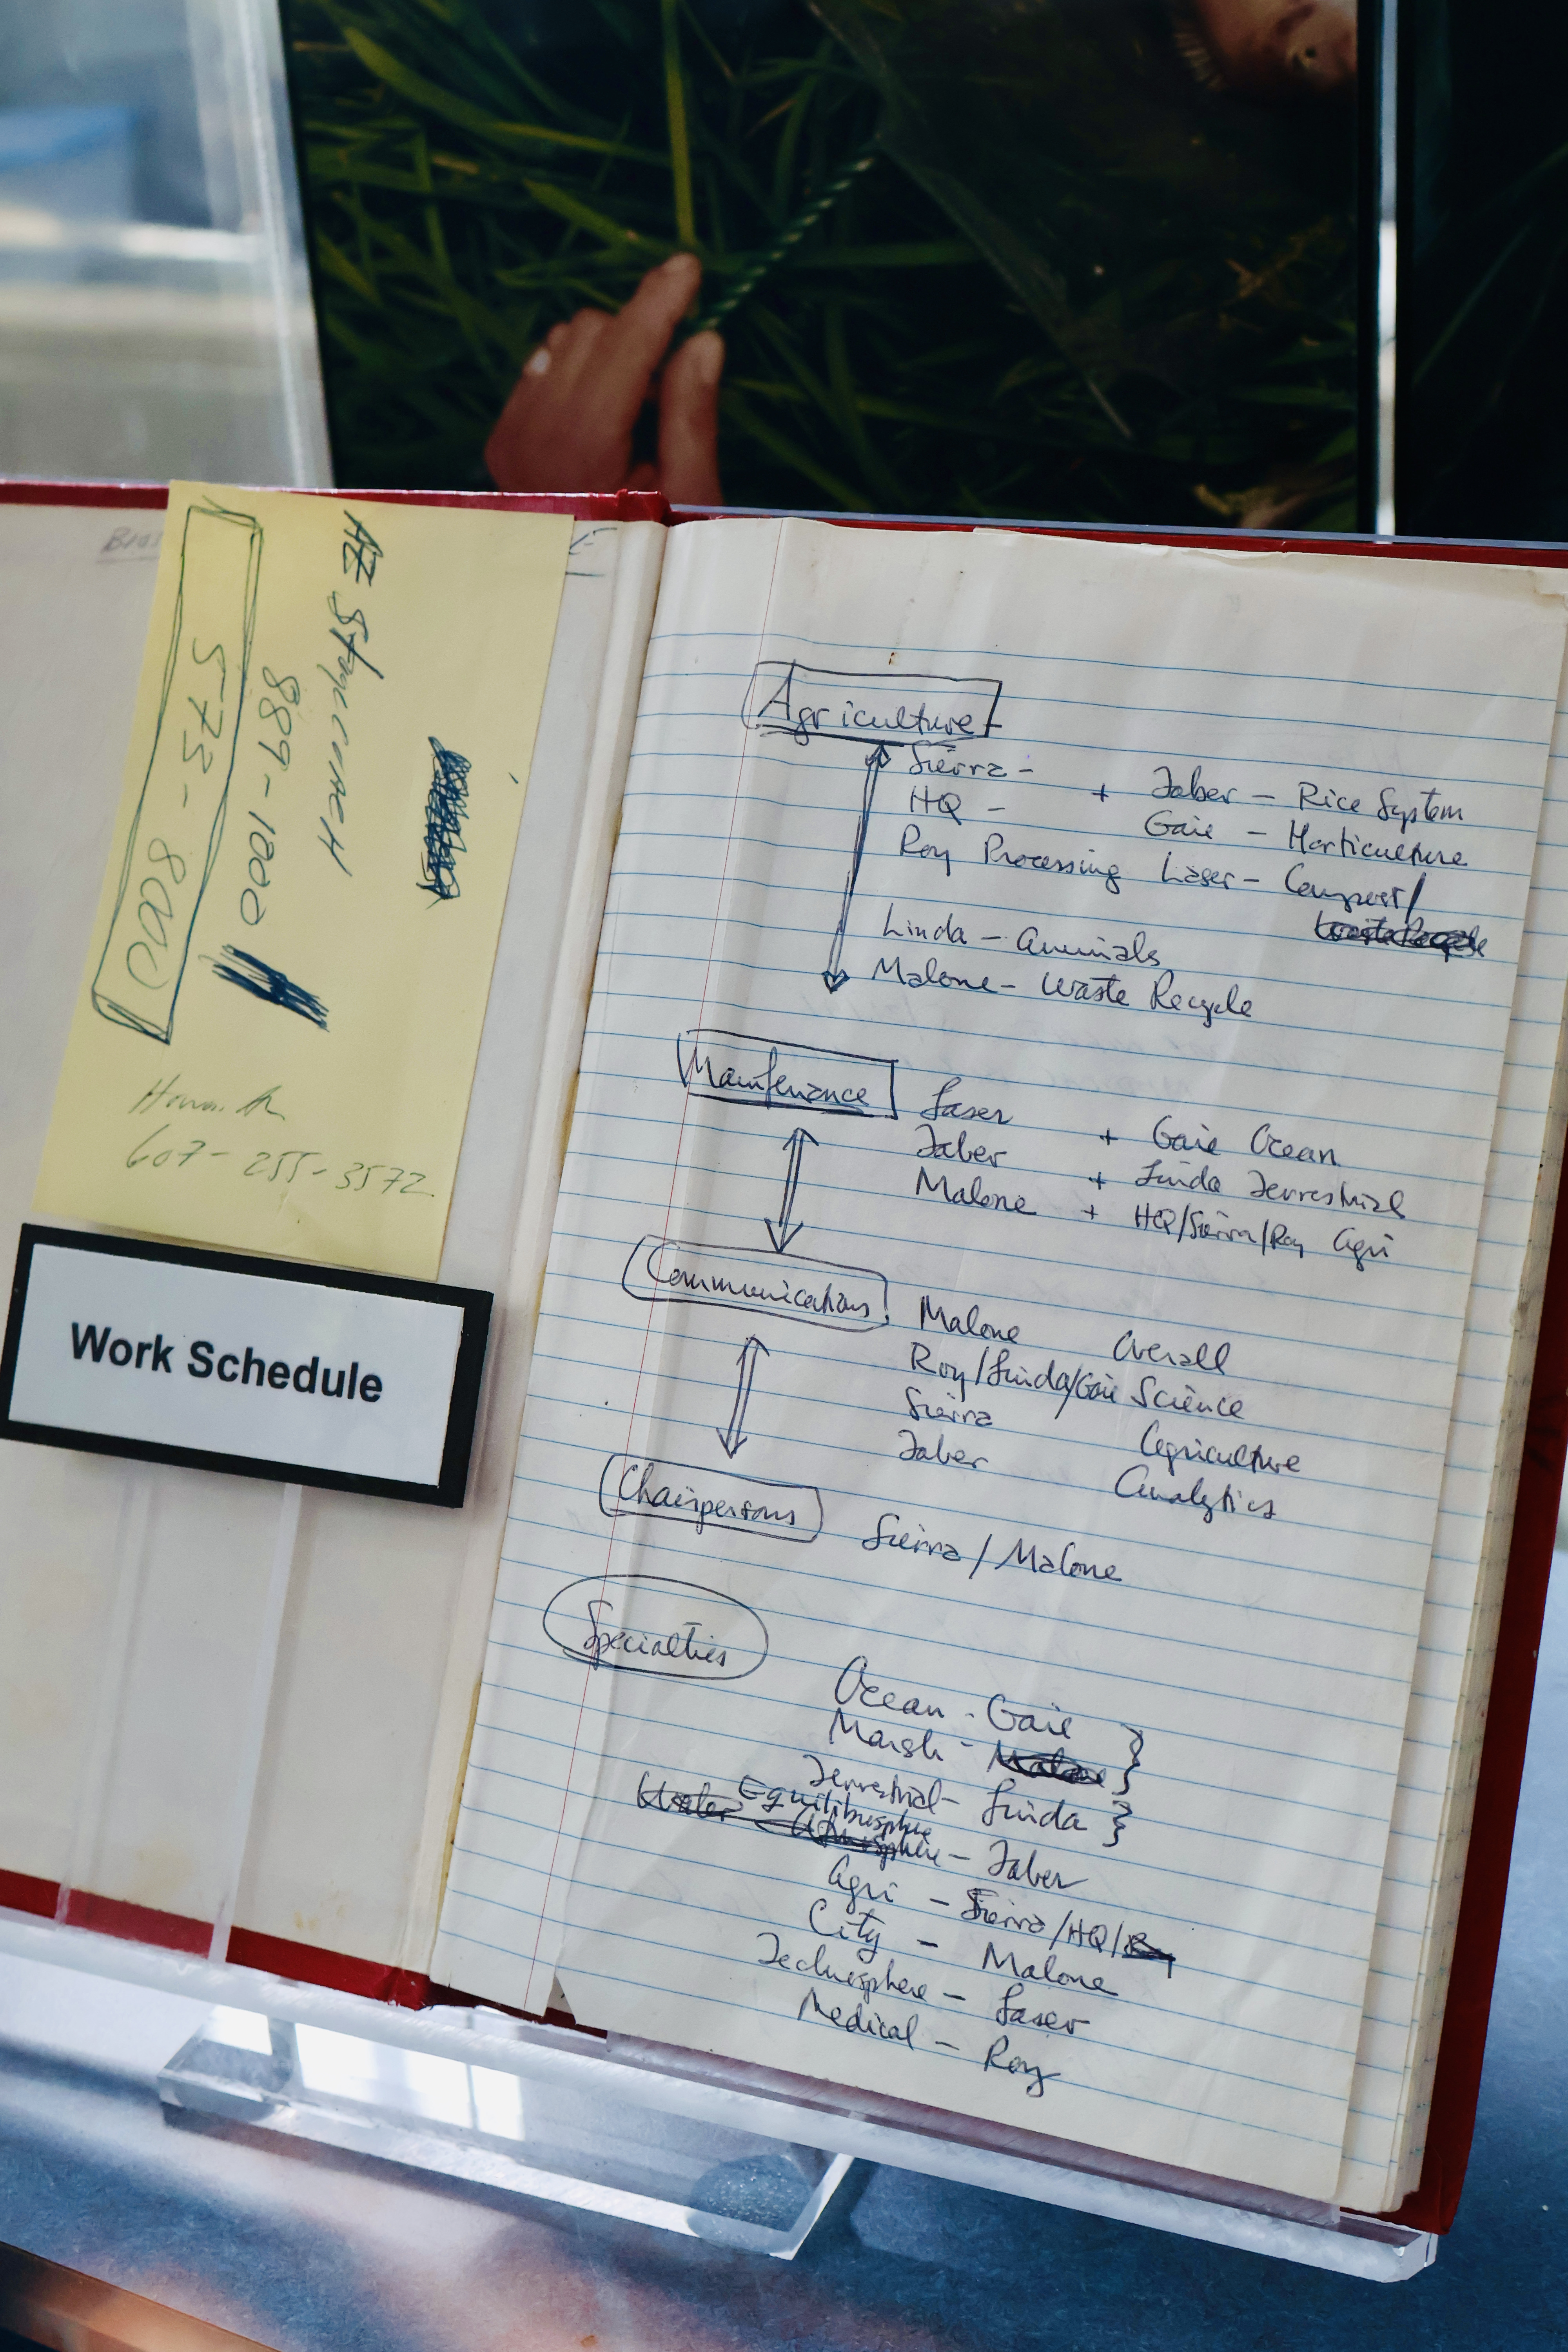 AZ Stagecoach
889-1000
573-8000
607-255-3572
Work Schedule
Agriculture
Sierra - + Taber - Rice System
HQ - Gaie - Horticulture
Roy Processing Laser - Compost/
Waste Recycle
Linda - Animals
Malone - Waste Recycle
Maintenance
Laser + Gaie Ocean
Taber + Linda Terrestrial
Malone + HQ/Sierra/Roy Agri
Communications
Malone Overall
Roy/Linda/Gaie Science
Sierra Agriculture
Taber Analytics
Chairpersons
Sierra / Malone
Specialties
Ocean - Gaie }
Marsh - Malone }
Terrestrial - Linda }
Equilibrisphere
Water Atmosphere - Taber
Agri - Sierra/HQ/Roy
City - Malone
Technosphere - Laser
Medical - Roy